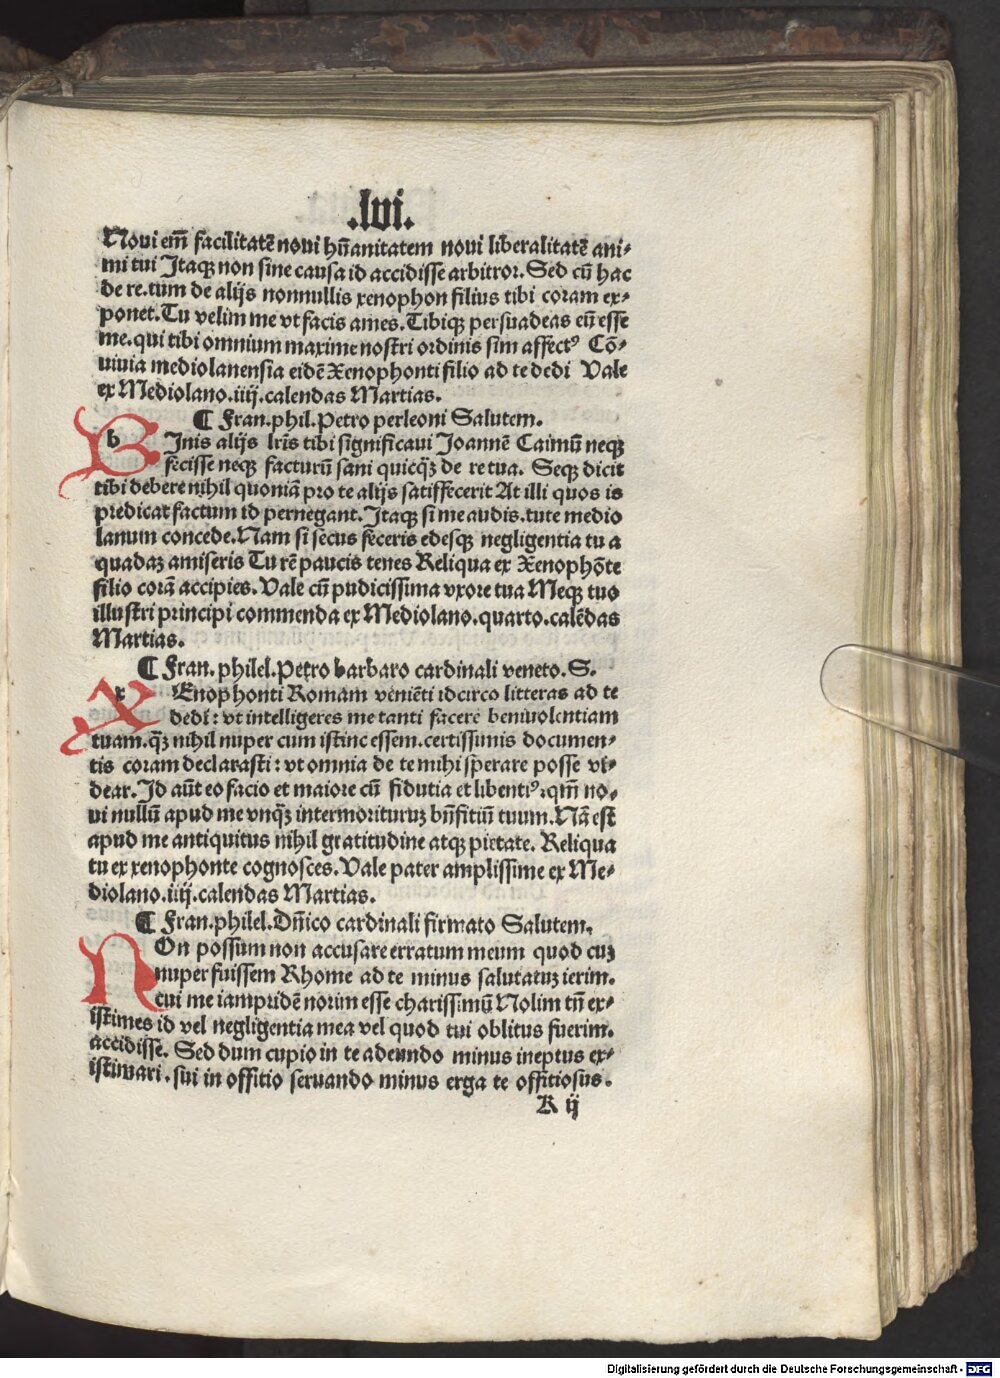 .lvi.
Noui em̄ facilitatē noui hūanitatem noui liberalitatē ani-
mi tui Itaqꝫ non sine causa id accidisse arbitror. Sed cū hac
de re. tum de alijs nonnullis xenophon filius tibi coram ex-
ponet. Tu velim me vt facis ames. Tibiqꝫ persuadeas eū esse
me. qui tibi omnium maxime nostri ordinis sim affectꝰ Cō-
uiuia mediolanensia eidē Xenophonti filio ad te dedi Vale
ex Mediolano. iiij. calendas Martias.
¶ Fran. phil. Petro perleoni Salutem.
b Inis alijs lr̄is tibi significaui Joannē Caimū neqꝫ
fecisse neqꝫ facturū sani quicqꝫ de re tua. Seqꝫ dicit
tibi debere nihil quoniā pro te alijs satisfecerit At illi quos is
predicat factum id pernegant. Itaqꝫ si me audis. tute medio
lanum concede. Nam si secus feceris edesqꝫ negligentia tu a
quadaꝫ amiseris Tu rē paucis tenes Reliqua ex Xenophōte
filio corā accipies. Vale cū pudicissima vxore tua Meqꝫ tuo
illustri principi commenda ex Mediolano. quarto. calēdas
Martias.
¶ Fran. philel. Petro barbaro cardinali veneto. S.
x Enophonti Romam veniēti idcirco litteras ad te
dedi: vt intelligeres me tanti facere beniuolentiam
tuam. qꝫ nihil nuper cum istinc essem. certissimis documen-
tis coram declarasti: vt omnia de te mihi sperare posse vi-
dear. Id aūt eo facio et maiore cū fidutia et libentiꝰ. qm̄ no-
ui nullū apud me vnqꝫ intermorituruꝫ bn̄fitiū tuum. Nā est
apud me antiquitus nihil gratitudine atqꝫ pietate. Reliqua
tu ex xenophonte cognosces. Vale pater amplissime ex Me-
diolano. iiij. calendas Martias.
¶ Fran. philel. Dn̄ico cardinali firmato Salutem.
NOn possum non accusare erratum meum quod cuꝫ
nuper fuissem Rhome ad te minus salutatuꝫ ierim.
cui me iampridē norim esse charissimū Nolim tn̄ ex-
istimes id vel negligentia mea vel quod tui oblitus fuerim.
accidisse. Sed dum cupio in te adeundo minus ineptus ex-
istimari. sui in offitio seruando minus erga te offitiosus.
K ij
Digitalisierung gefördert durch die Deutsche Forschungsgemeinschaft - DFG